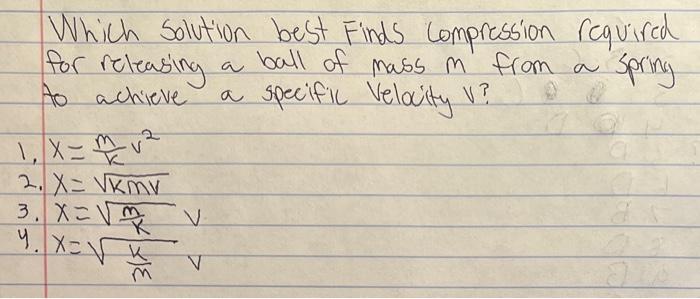 Which solution best Finds compression required
for releasing a ball of mass m from a spring
to achieve a specific velocity v?
1. X = m/k v²
2. X = √kmv
3. X = √(m/k) v
4. X = √(k/m) v